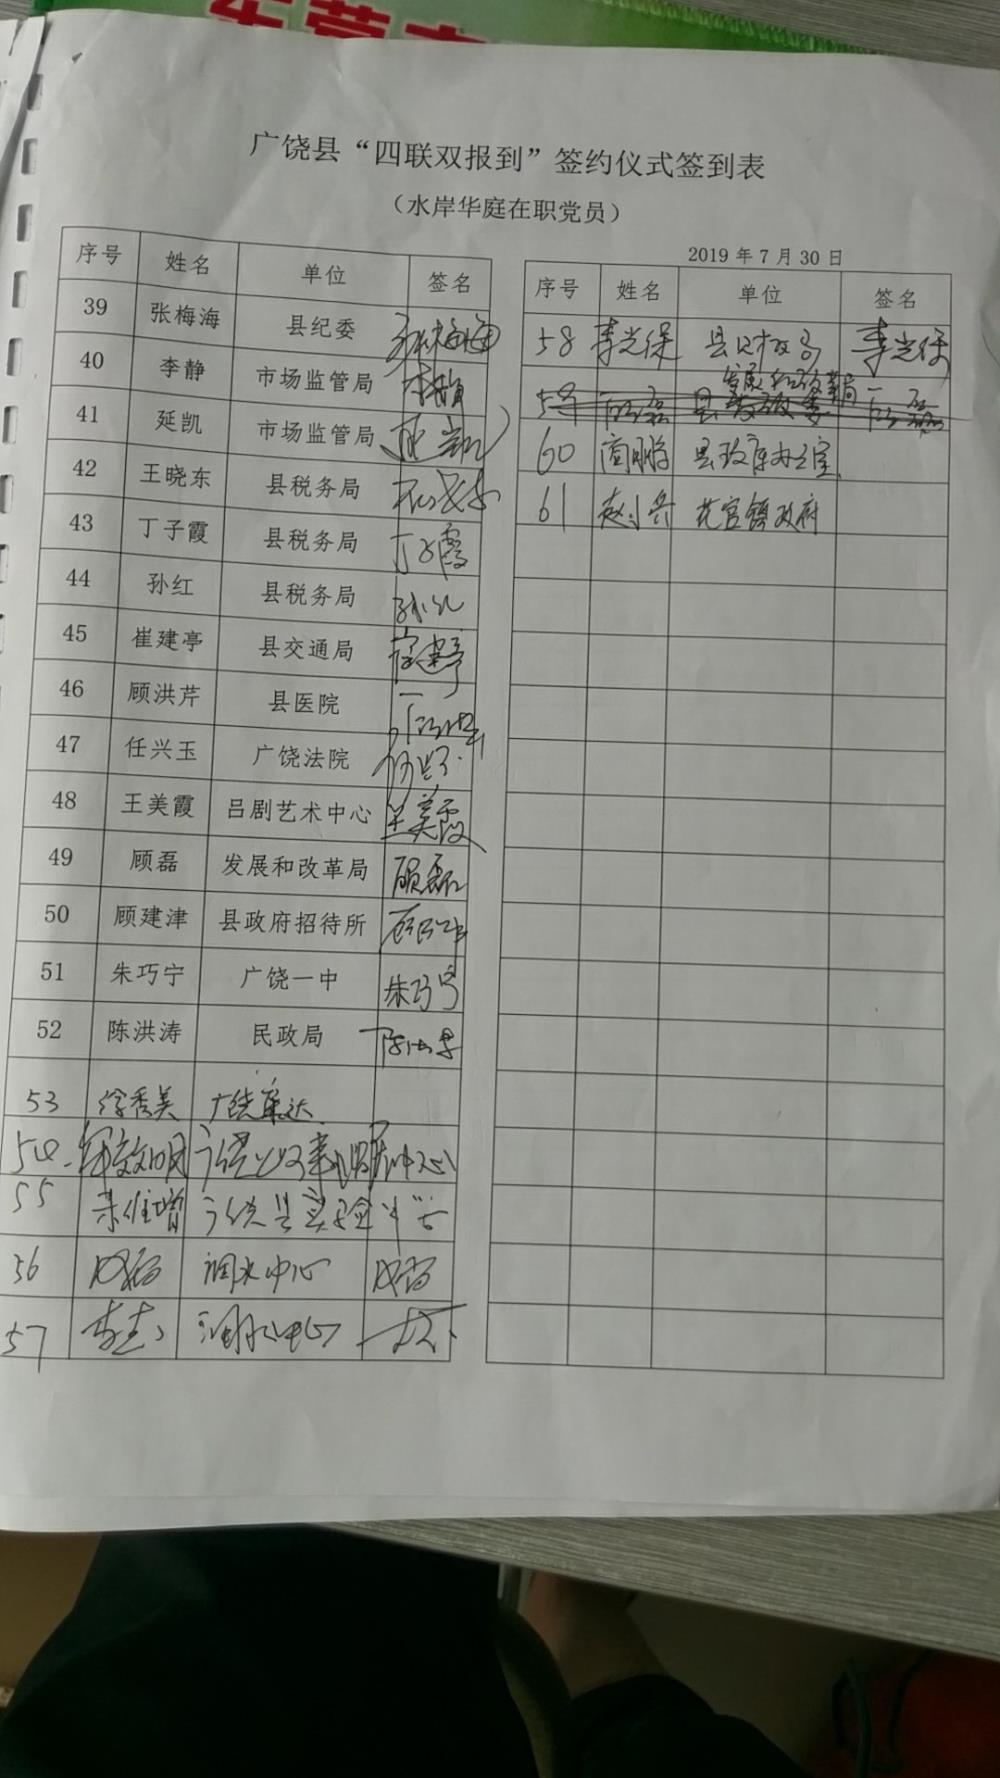 广饶县“四联双报到”签约仪式签到表
（水岸华庭在职党员）
2019 年 7 月 30 日
序号 姓名 单位 签名
39 张梅海 县纪委 张梅海
40 李静 市场监管局
41 延凯 市场监管局 延凯
42 王晓东 县税务局 王晓东
43 丁子霞 县税务局 丁子霞
44 孙红 县税务局 孙红
45 崔建亭 县交通局 崔建亭
46 顾洪芹 县医院
47 任兴玉 广饶法院
48 王美霞 吕剧艺术中心 王美霞
49 顾磊 发展和改革局 顾磊
50 顾建津 县政府招待所
51 朱巧宁 广饶一中 朱巧宁
52 陈洪涛 民政局 陈洪涛
53 徐秀美 广饶
54
55 广饶县实验中学
56 调水中心
57 李 调水中心
序号 姓名 单位 签名
58 李光保 县财政局 李光保
59 顾磊 县发改委 发展和改革局 顾磊
60 商鹏 县政府办公室
61 赵 花官镇政府